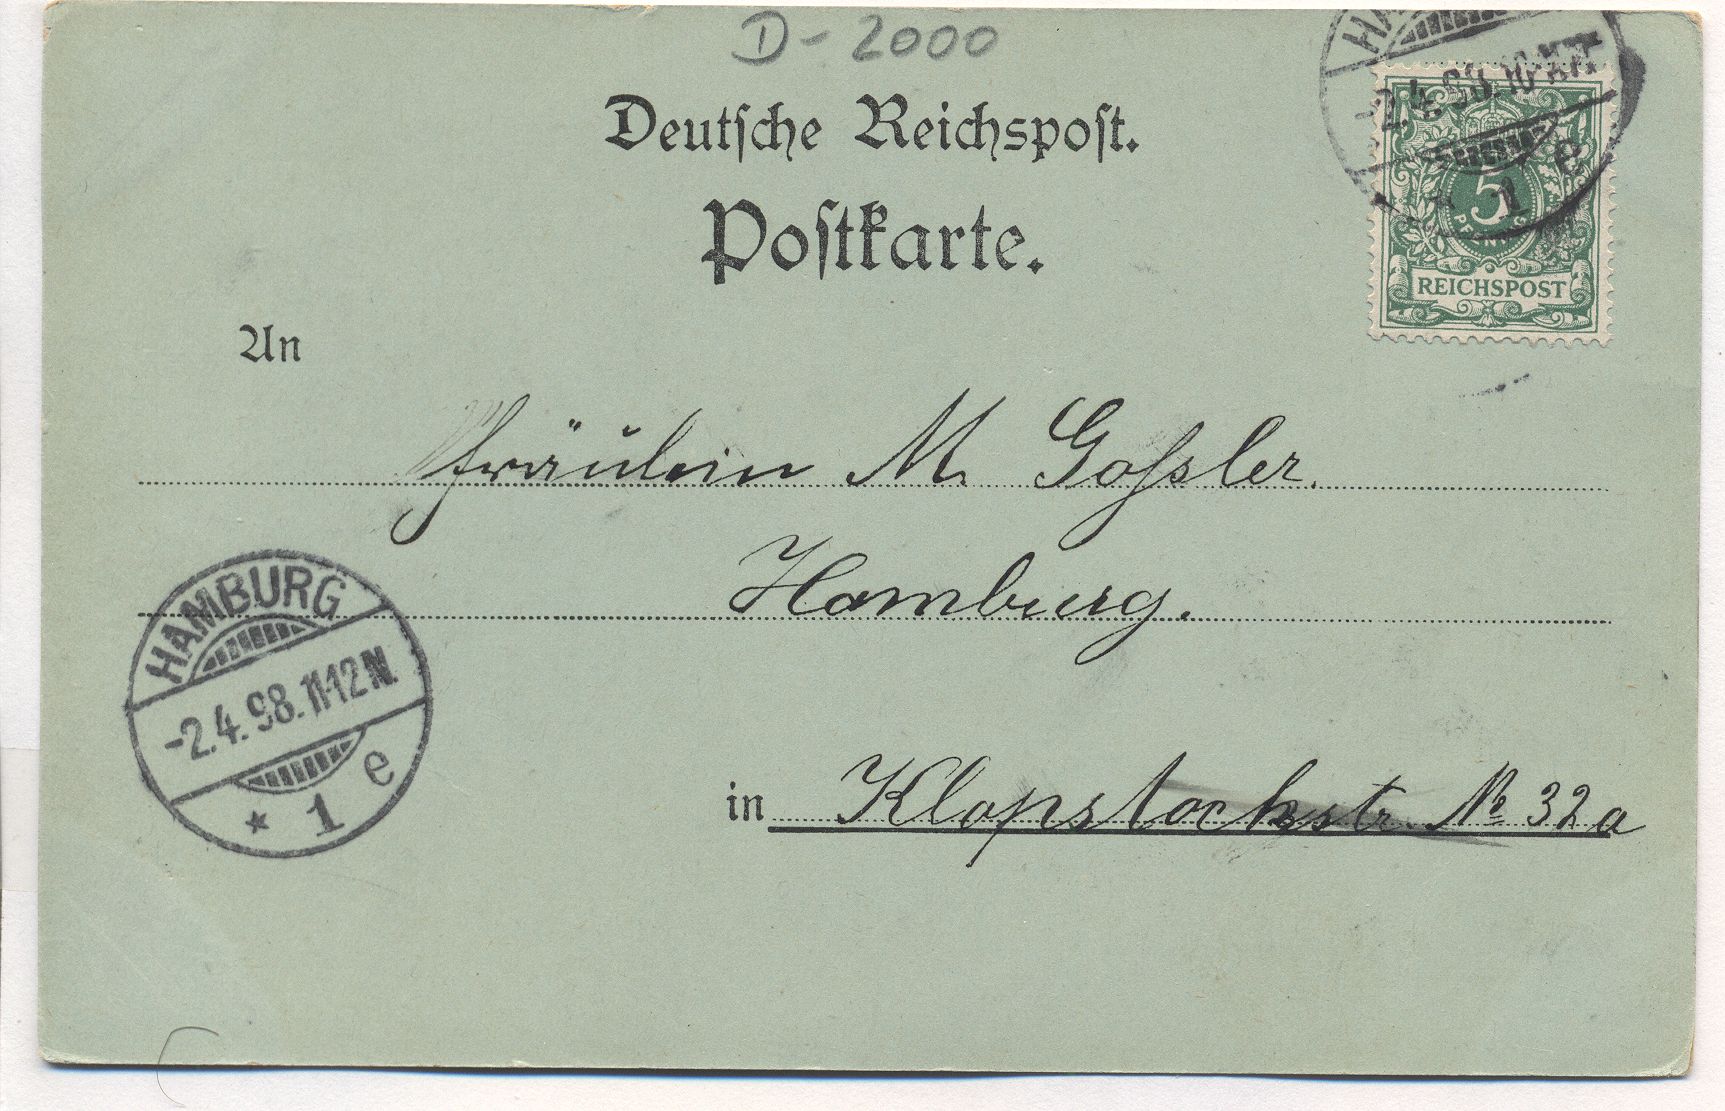 D - 2000
Deutsche Reichspost.
Postkarte.
5
REICHSPOST
1 e
An
Fräulein M. Gossler.
Hamburg.
in Klopstockstr. No 32a
HAMBURG
-2.4.98.11-12N.
* 1 e